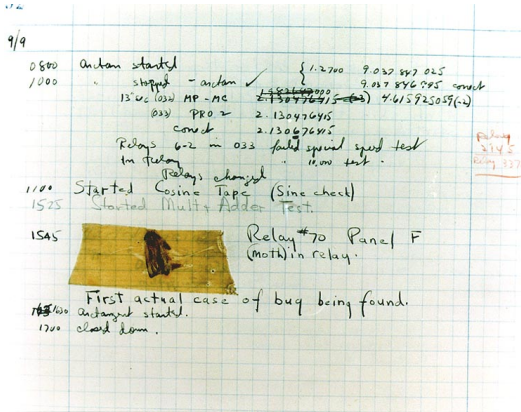 9/9
0800 Antan started
1000 " stopped - antan ✓ { 1.2700 9.037 847 025
9.037 846 995 correct
13"uc (032) MP - MC 2.130476415 4.615925059(-2)
(033) PRO 2 2.130476415
correct 2.130676415
Relays 6-2 in 033 failed special speed test
In Relay " 10,000 test .
Relays changed
Relay
2145
Relay 337
1100 Started Cosine Tape (Sine check)
1525 Started Mult + Adder Test.
1545 Relay #70 Panel F
(moth) in relay.
First actual case of bug being found.
1630 Antangent started.
1700 closed down.